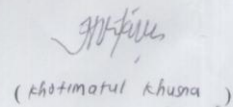 ( Khotimatul Khusna )